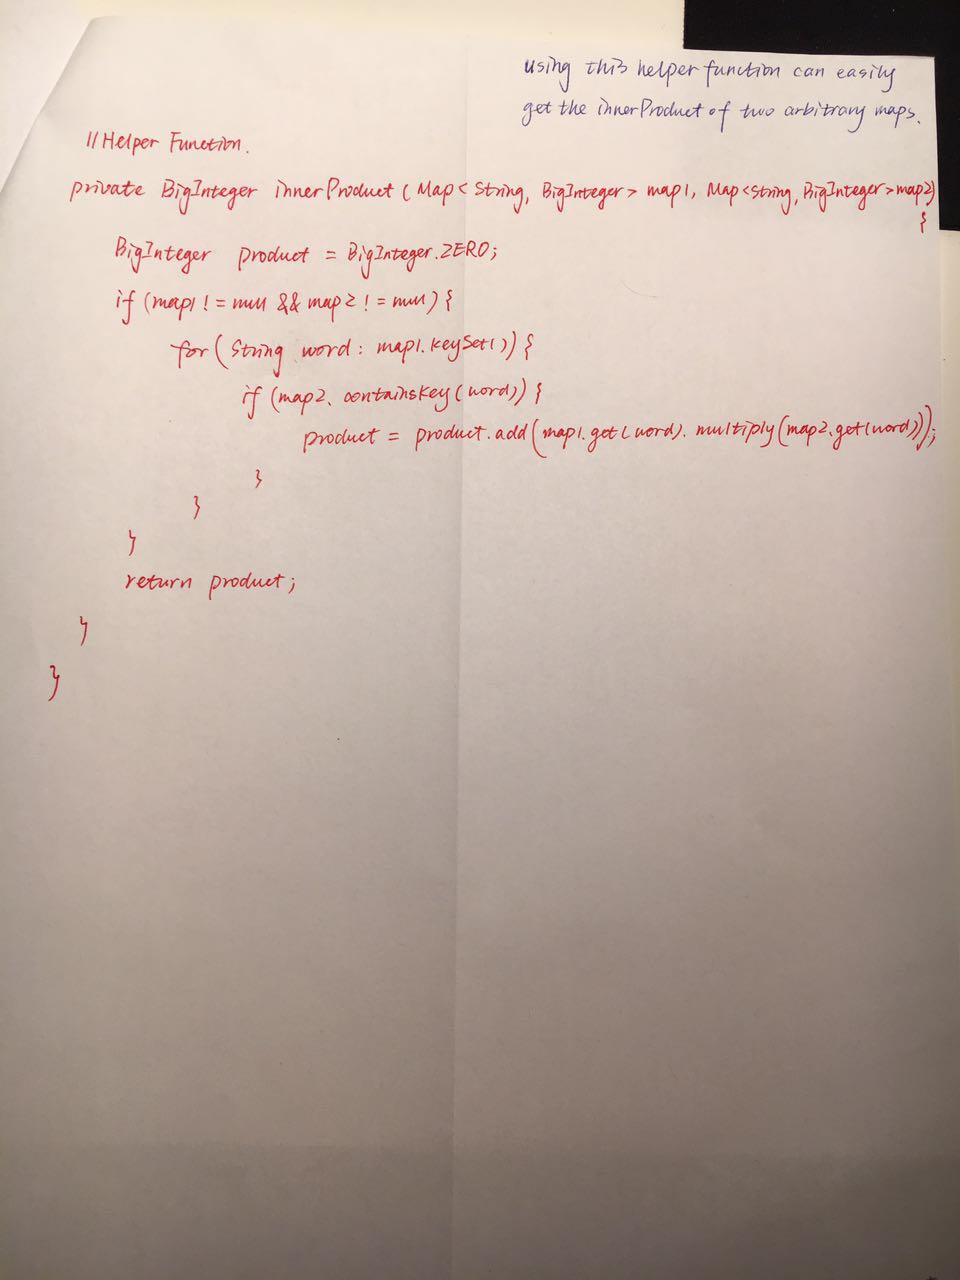 using this helper function can easily
get the innerProduct of two arbitrary maps.
//Helper Function.
private BigInteger innerProduct (Map<String, BigInteger> map1, Map<String, BigInteger> map2)
{
BigInteger product = BigInteger.ZERO;
if (map1 != null && map2 != null) {
for (String word : map1.keySet()) {
if (map2.containsKey(word)) {
product = product.add(map1.get(word).multiply(map2.get(word)));
}
}
}
return product;
}
}